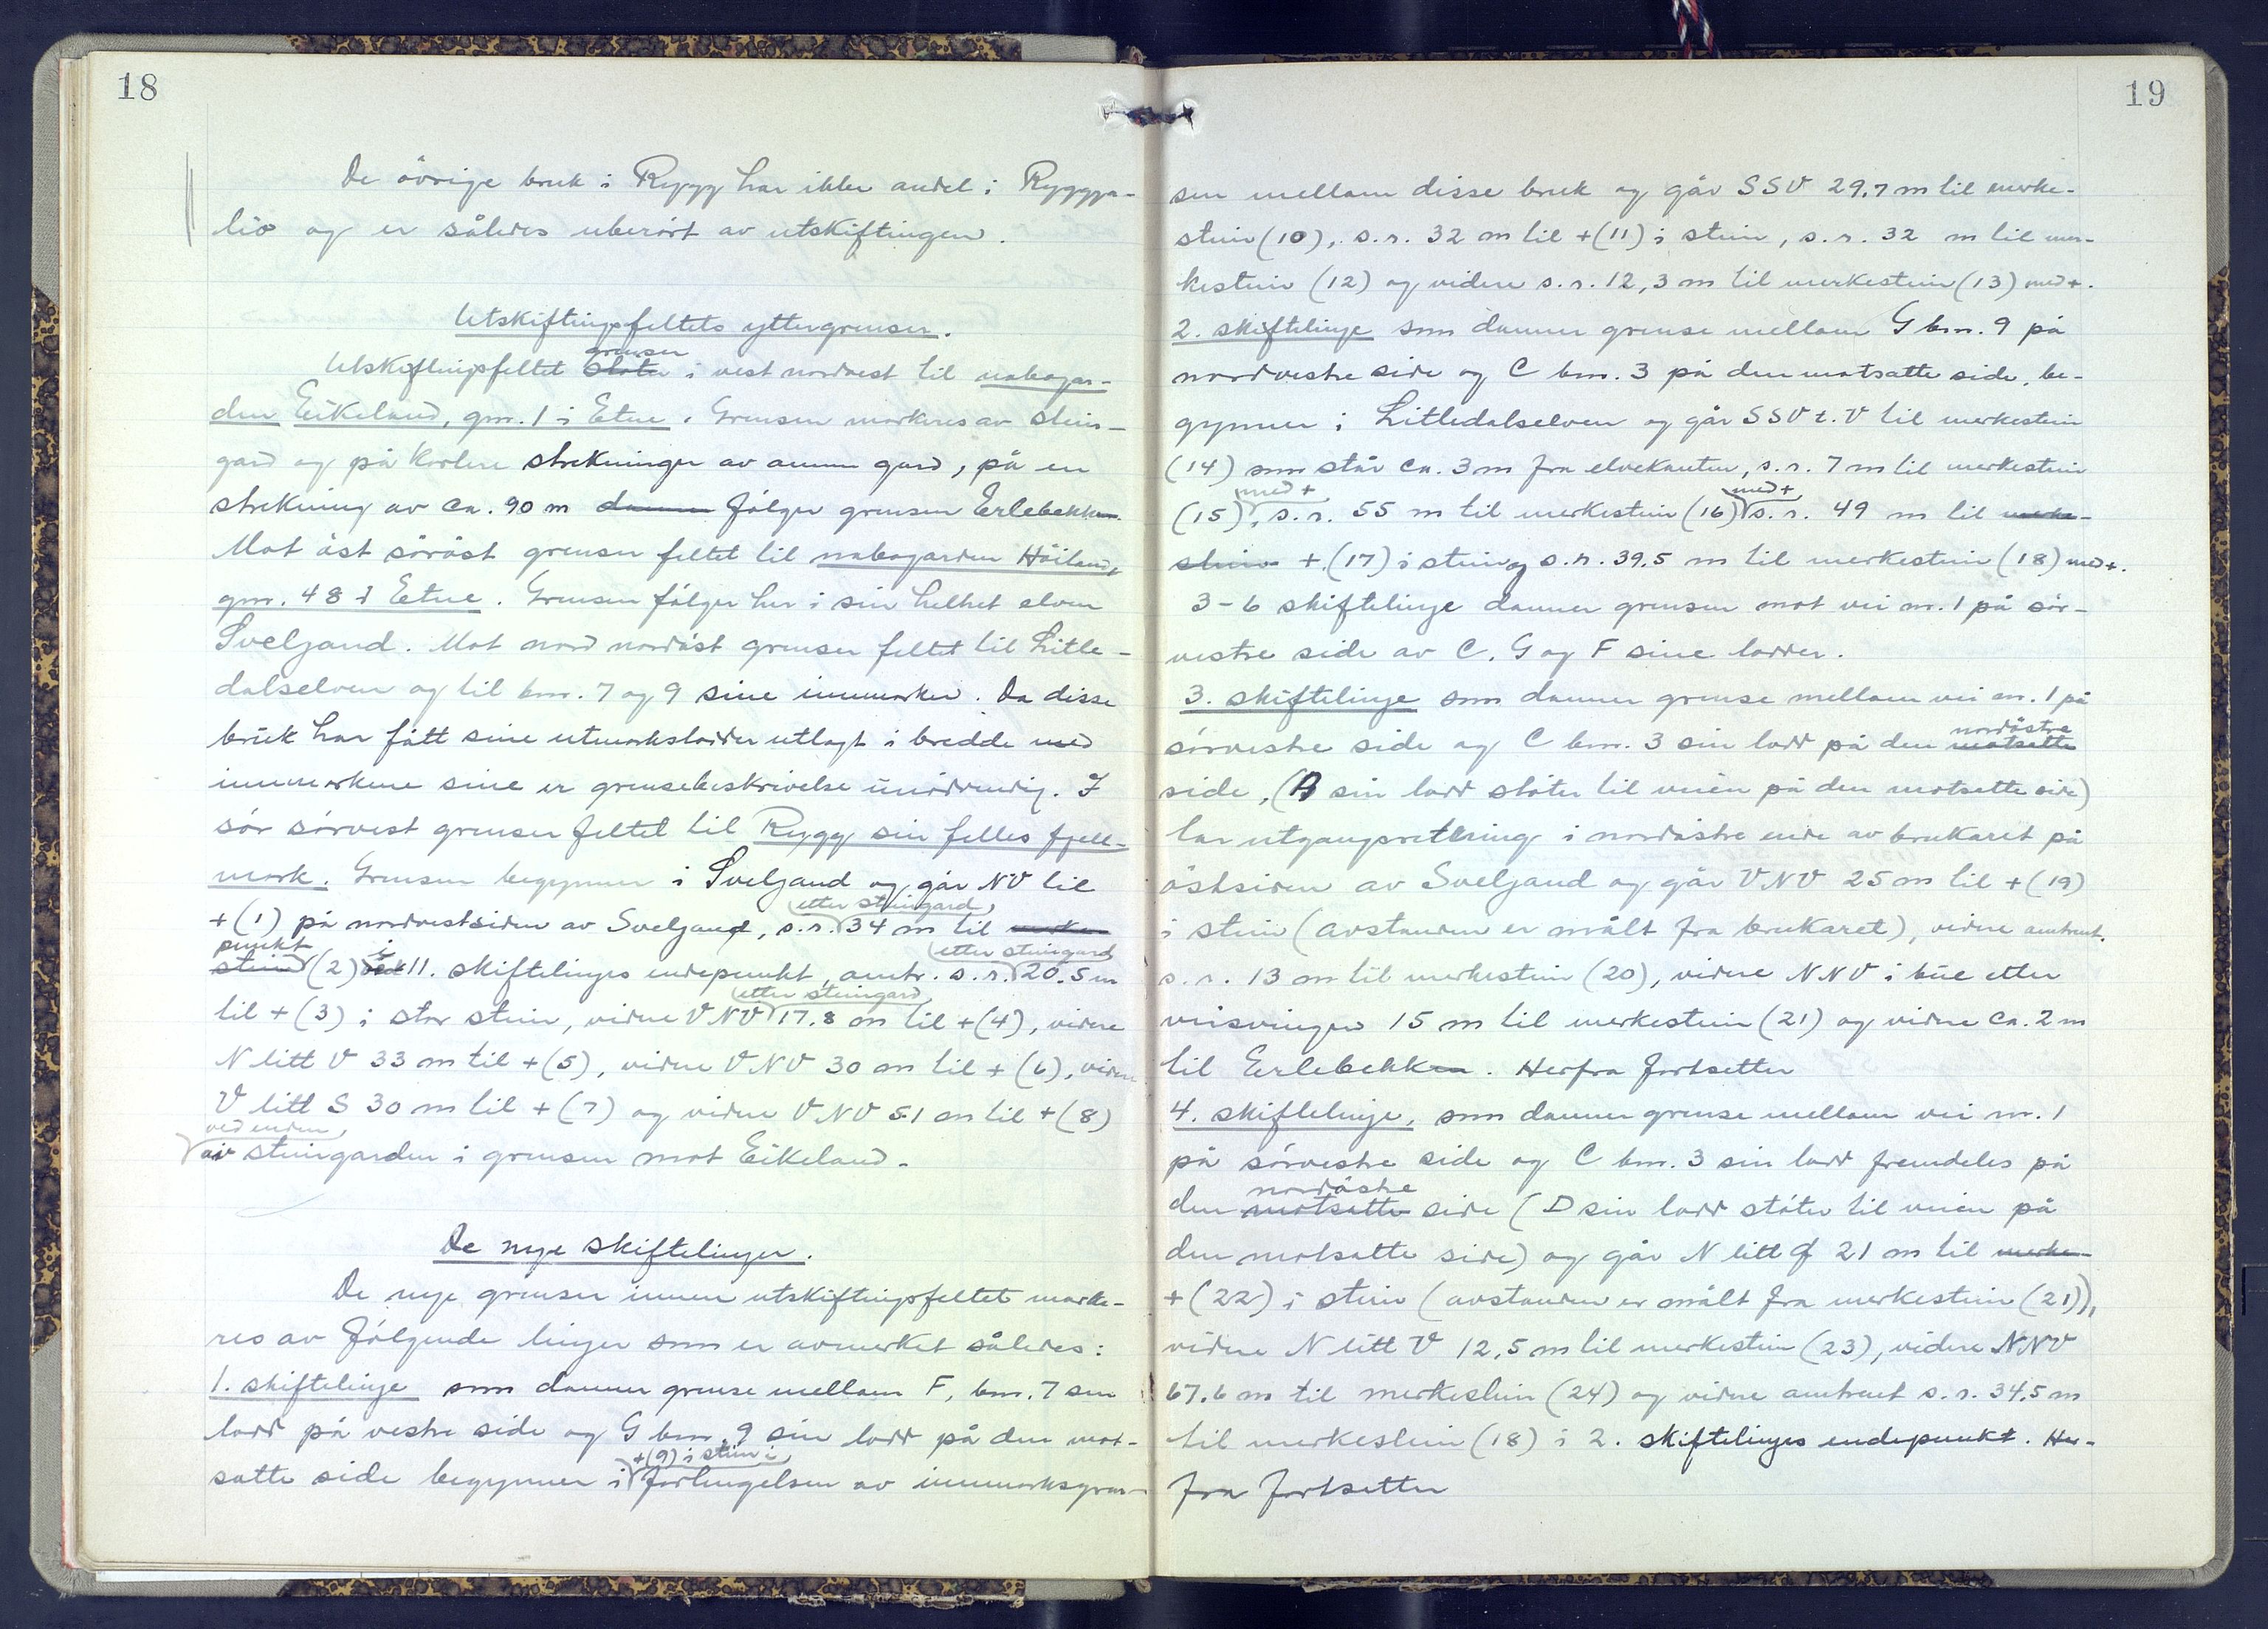 18
De övrige bruk i Rygg har ikke andel i Ryggja-
lio og er således uberört av utskiftingen.
Utskiftingsfeltets yttergrenser.
grenser
Utskiftingsfeltet støter i vest nordvest til nabogar-
den Eikeland, gnr. 1 i Etne. Grensen markeres av stein-
gard og på kortere strekninger av annen gard, på en
strekning av ca. 90 m danner fölger grensen Erlebekken.
Mot öst söröst grenser feltet til nabogarden Höiland,
gnr. 48 i Etne. Grensen fölger her i sin helhet elven
Sveljand. Mot nord nordöst grenser feltet til Litle-
dalselven og til bnr. 7 og 9 sine innmarker. Da disse
bruk har fått sine utmarkslodder utlagt i bredde med
innmarkene sine er grensebeskrivelse unödvendig. I
sör sörvest grenser feltet til Rygg sin felles fjell-
mark. Grensen begynner i Sveljand og går NV til
etter steingard,
+ (1) på nordvestsiden av Sveljand, s.r. 34 m til merke-
punkt i etter steingard
stein (2) ved 11. skiftelinjes endepunkt, omtr. s.r. 20.5 m
etter steingard
til + (3) i stor stein, videre VNV 17.8 m til + (4), videre
N litt V 33 m til + (5), videre VNV 30 m til + (6), videre
V litt S 30 m til + (7) og videre VNV 51 m til + (8)
ved enden,
av steingarden i grensen mot Eikeland.
De nye skiftelinjer.
De nye grenser innen utskiftingsfeltet marke-
res av fölgende linjer som er avmerket således:
1. skiftelinje som danner grense mellom F, bnr. 7 sin
lodd på vestre side og G bnr. 9 sin lodd på den mot-
+ (9) i stein i
satte side begynner i forlengelsen av innmarksgren-
19
sen mellom disse bruk og går SSV 29.7 m til merke-
stein (10), s.r. 32 m til + (11) i stein, s.r. 32 m til mer-
kestein (12) og videre s.r. 12,3 m til merkestein (13) med +.
2. skiftelinje som danner grense mellom G bnr. 9 på
nordvestre side og C bnr. 3 på den motsatte side, be-
gynner i Litledalselven og går SSV t. V til merkestein
(14) som står ca. 3 m fra elvekanten, s.r. 7 m til merkestein
med + med +
(15), s.r. 55 m til merkestein (16) s.r. 49 m til merke-
stein + (17) i stein og s.r. 39.5 m til merkestein (18) med +.
3-6 skiftelinje danner grensen mot vei nr. 1 på sör-
vestre side av C, G og F sine lodder.
3. skiftelinje som danner grense mellom vei nr. 1 på
nordöstre
sörvestre side og C bnr. 3 sin lodd på den motsatte
side, (A sin lodd stöter til veien på den motsette side)
tar utgangsretning i nordöstre ende av brukaret på
östsiden av Sveljand og går VNV 25 m til + (19)
i stein (avstanden er målt fra brukaret), videre omtrent
s.r. 13 m til merkestein (20), videre NNV i bue etter
veisvingen 15 m til merkestein (21) og videre ca. 2 m
til Erlebekken. Herfra fortsetter
4. skiftelinje, som danner grense mellom vei nr. 1
på sörvestre side og C bnr. 3 sin lodd fremdeles på
nordöstre
den motsatte side (D sin lodd stöter til veien på
den motsatte side) og går N litt Ø 21 m til merke-
+ (22) i stein (avstanden er målt fra merkestein (21)),
videre N litt V 12,5 m til merkestein (23), videre NNV
67.6 m til merkestein (24) og videre omtrent s.r. 34.5 m
til merkestein (18) i 2. skiftelinjes endepunkt. Her-
fra fortsetter